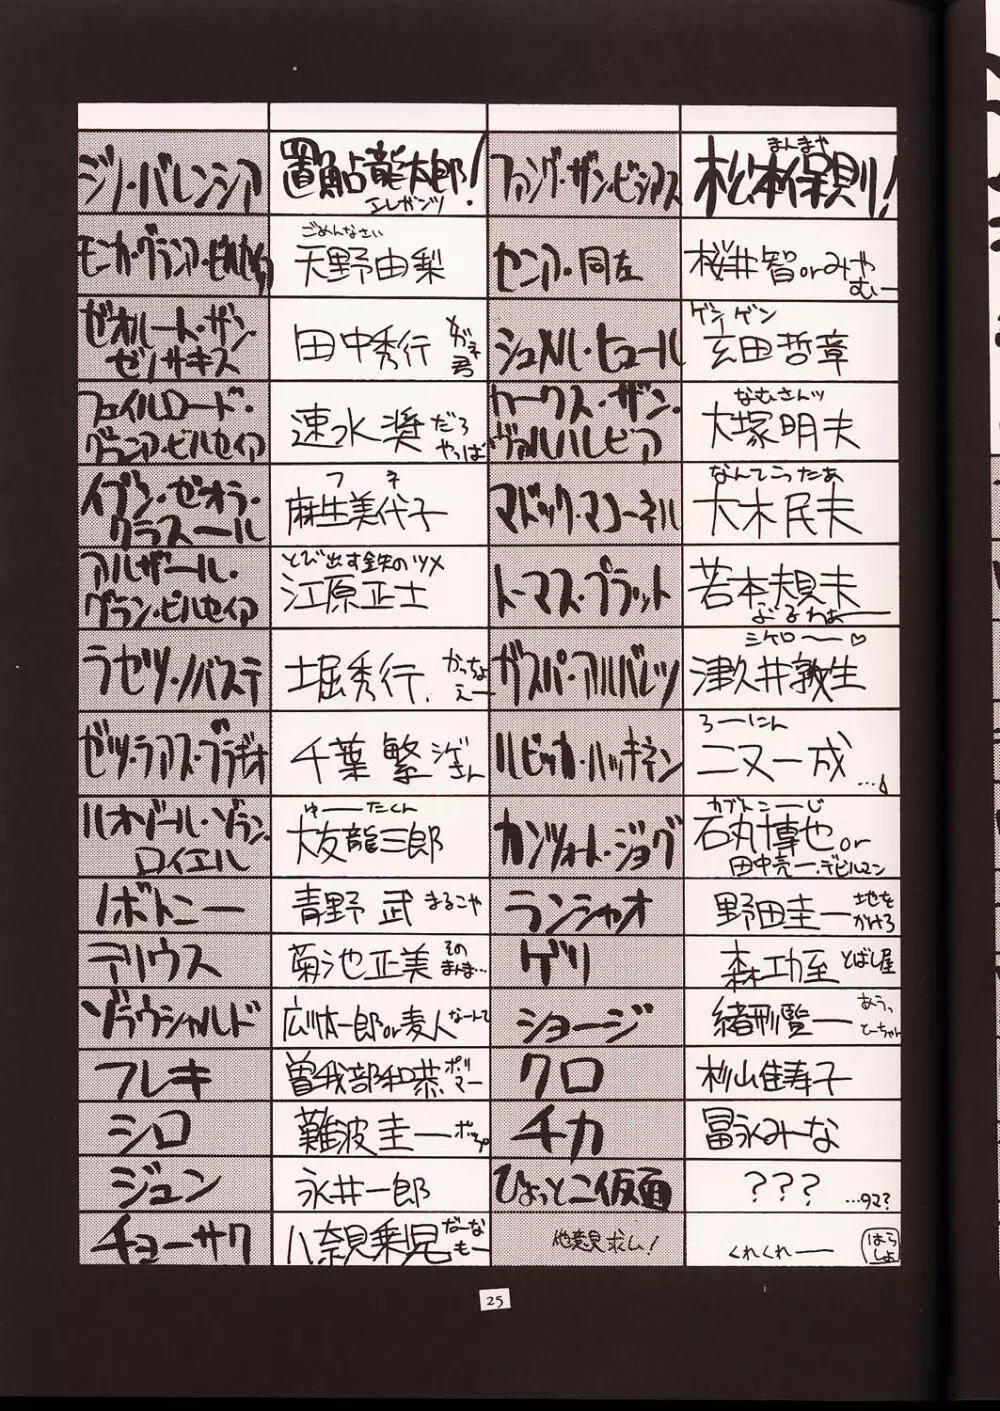 ジノ・バレンシア
置鮎龍太郎!
エレガンツ
ファング・ザン・ビシアス
まんまや
松本保則!
モニカ・グランア・ビルセイア
ごめんなさい
天野由梨
セニア・同左
桜井智orみや
むー
ゼオルート・ザン・
ゼノサキス
田中秀行
メガネ
君
シュメル・ヒュール
ゲンゲン
玄田哲章
フェイルロード・
グランア・ビルセイア
速水奨
だろ
やっぱ
カークス・ザン・
ヴァルハレビア
なむさんッ
大塚明夫
イブン・ゼオラ・
クラスール
フネ
麻生美代子
マドック・マコーネル
なんてこったあ
大木民夫
アルザール・
グラン・ビルセイア
とび出す鉄のツメ
江原正士
トーマス・プラット
若本規夫
ぶるわぁー
ラセツ・ノバステ
堀秀行
かっちょ
えー
ガスパ・アルバレツ
シケロー♡
津久井教生
ゼツ・ラアス・ブラギオ
千葉繁
シゲ
さん
ルビッカ・ハッキネン
ろーにん
二又一成
ハオドール・ゾラン・
ロイエル
ゆーたくん
大友龍三郎
カンツォート・ジョグ
カブトこーじ
石丸博也or
田中亮一・デビルマン
ノボトニー
青野武
まるこや
ランシャオ
野田圭一
地を
かけろ
デリウス
菊池正美
その
まんま…
ゲリ
森功至
とばし屋
ゾラウシャルド
広瀬一郎or麦人
なーんて
ショージ
緒形賢一
あうっ
とーちゃん
フレキ
曽我部和恭
ボ
マー
クロ
杉山佳寿子
シロ
難波圭一
ポップ
チカ
冨永みーな
ジュン
永井一郎
ひょっとこ仮面
???
…タマ?
チョーサク
八奈見乗児
だーな
もー
他意見求ム!
くれくれー
はら
しょ
25